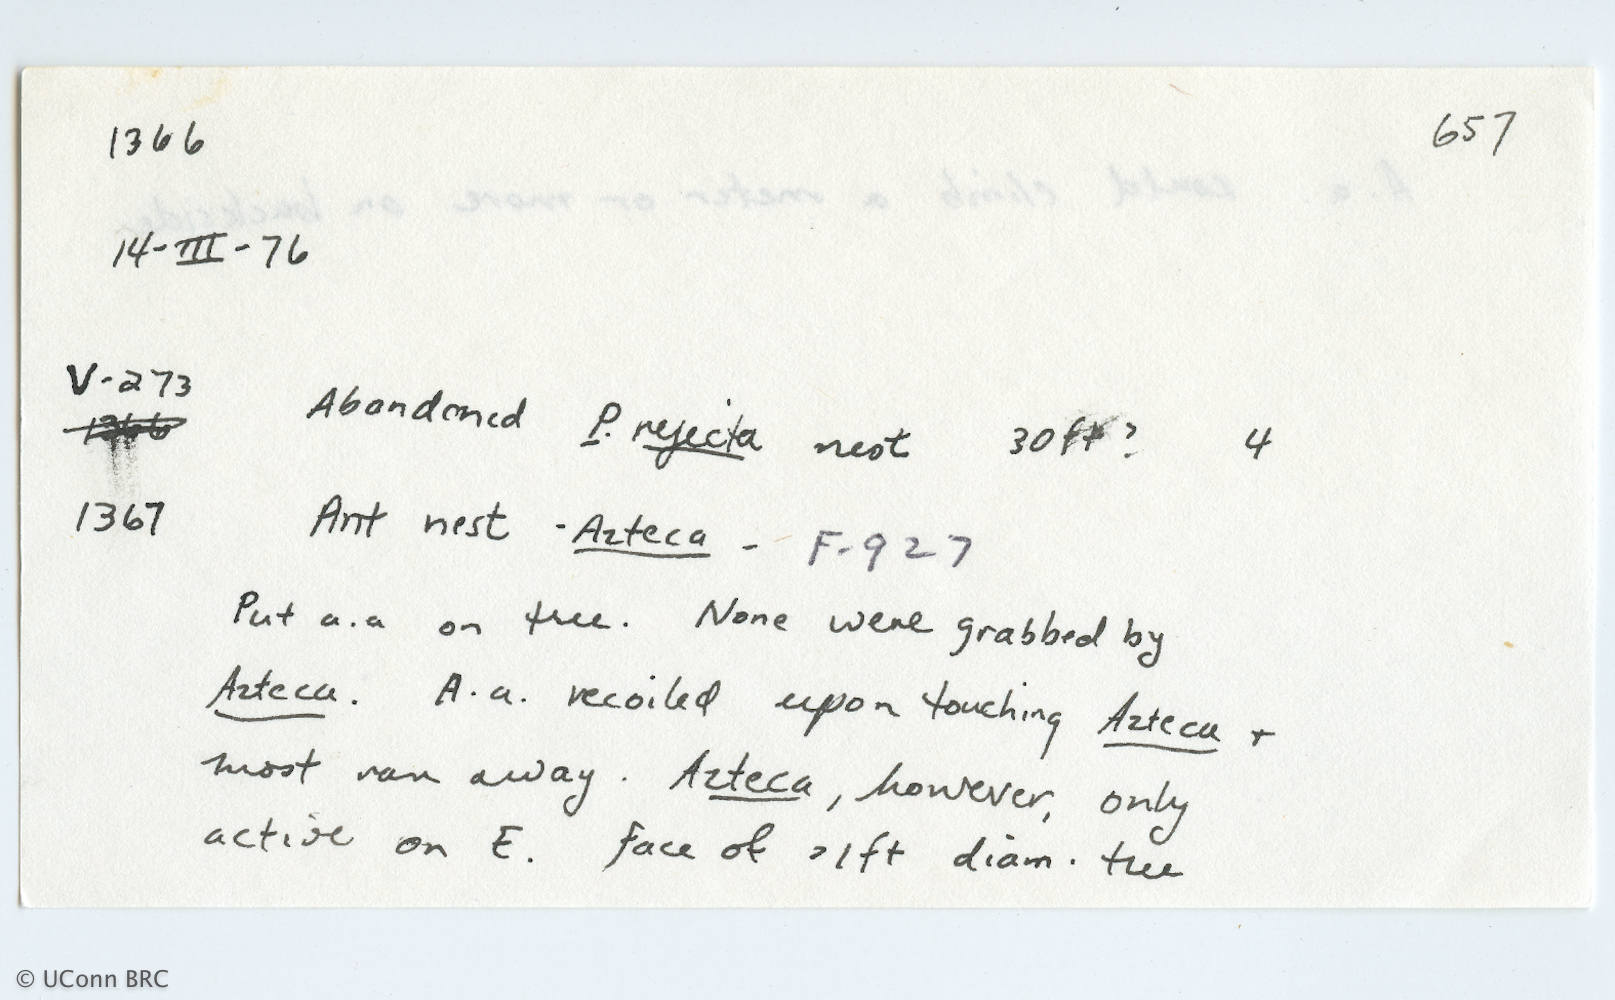 1366
657
A.a. could climb a meter or more on backside.
14-III-76
V-273
1366
Abandoned P. rejecta nest 30ft? 4
1367 Ant nest - Azteca - F-927
Put a.a on tree. None were grabbed by
Azteca. A.a. recoiled upon touching Azteca +
most ran away. Azteca, however, only
active on E. face of >1ft diam. tree
© UConn BRC